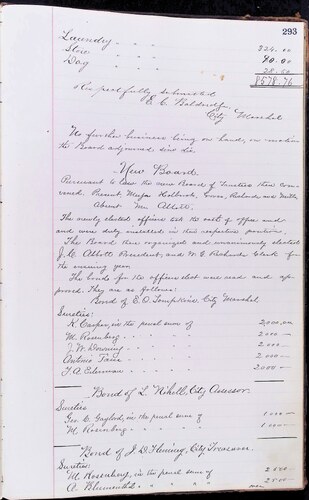 293
Laundry . . . . 224.00
Slow . . . . 90.00
Dog . . . . 28.50
8578.76
Respectfully submitted
E. C. Baldridge
City Marshal
No further business being on hand, on motion
the Board adjourned sine die.
New Board.
Pursuant to law the new Board of Trustees then con-
vened. Present, Holbrook, and
Absent Mr. Abbott.
The newly elected officers took the oath of office and
and were duly installed in their respective positions.
The Board then organized and unanimously elected
J. C. Abbott President, and W. E. Richards Clerk for
the ensuing year.
The bonds for the officers elect were read and ap-
proved. They are as follows:
Bond of E. O. Tompkins, City Marshal.
Sureties:
K. Casper, in the penal sum of 2,000.00
M. Rosenberg . . . . 2,000 —
J. W. Downing . . . . 2,000 —
Antonio . . . . 2,000 —
F. A. . . . . 2,000 —
Bond of L. Nihell, City Assessor.
Sureties
Geo. E. Gaylord, in the penal sum of 1,000 —
M. Rosenberg . . . . 1,000 —
Bond of J. D. Fleming, City Treasurer.
Sureties:
M. Rosenberg, in the penal sum of 2,500 —
A. Blumenthal . . . . 2,500 —